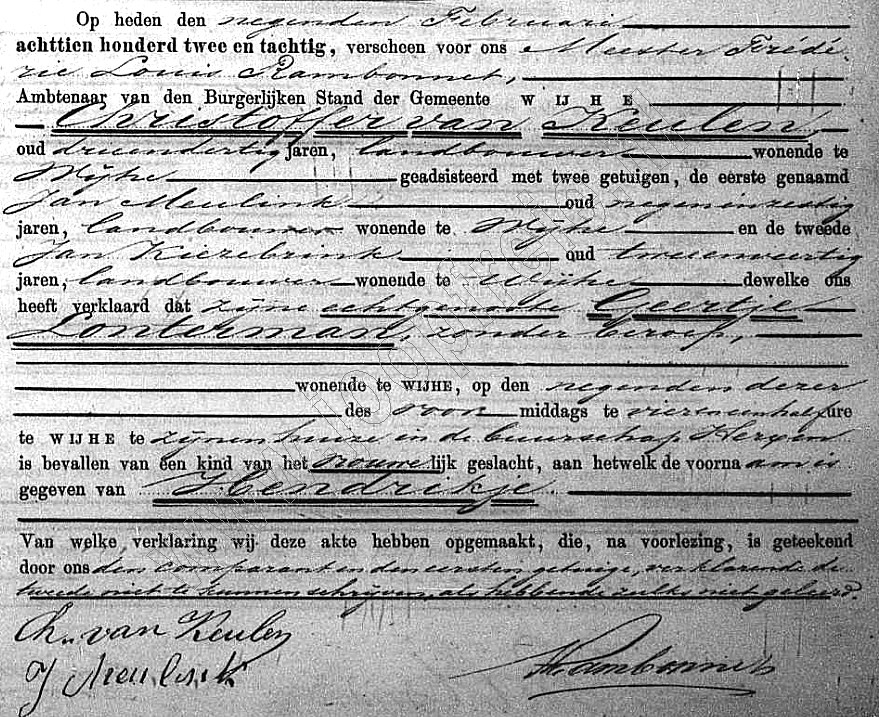 Op heden den negenden Februari
achttien honderd twee en tachtig, verscheen voor ons Meester Frédé-
ric Louis Rambonnet,
Ambtenaar van den Burgerlijken Stand der Gemeente WIJHE
Christoffer van Keulen,
oud drieendertig jaren, landbouwer wonende te
Wijhe geadsisteerd met twee getuigen, de eerste genaamd
Jan Meulink oud negenenzestig
jaren, landbouwer wonende te Wijhe en de tweede
Jan Kiezebrink oud tweeenveertig
jaren, landbouwer wonende te Wijhe dewelke ons
heeft verklaard dat zijne echtgenoote Geertje
Lonterman, zonder beroep,
wonende te WIJHE, op den negenden dezer
des voor middags te vier en een half ure
te WIJHE te zijnen huize in de buurschap Herxen
is bevallen van een kind van het vrouwelijk geslacht, aan hetwelk de voornaam is
gegeven van Hendrikje.
Van welke verklaring wij deze akte hebben opgemaakt, die, na voorlezing, is geteekend
door ons den comparant en den eersten getuige, verklarende de
tweede niet te kunnen schrijven, als hebbende zulks niet geleerd.
Ch. van Keulen
J Meulink
Rambonnet